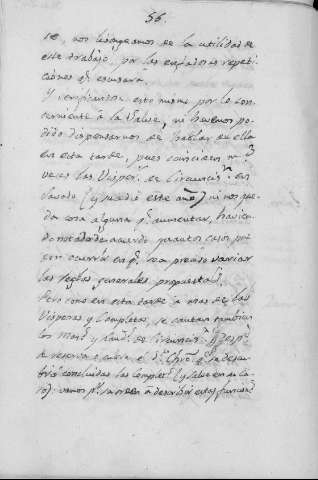 56.
te, nos lisongeamos de la utilidad de
este trabajo, por las enfadosas repeti-
ciones q.e escusará.
Y verificandose esto mismo por lo con-
cerniente à la Salve, ni hacemos po-
dido dispensarnos de hablar de ella
en esta tarde, pues coinciden m.s
veces las Visper.s de Circuncis.n en
Savado (y una de este año) ni nos que-
da cosa alguna q.e aumentar, havien-
do notado de acuerdo quantos casos pue-
den ocurrir en q.e sea preciso variar
las reglas generales propuestas.
Pero como en esta tarde à mas de las
Visperas y Completas, se cantan tambien
los Mait.s y Laud.s de Circuncis.n y desp.s
se reserva ó cubre el S.r
concluidas las Complet.s (y Salve en su ca-
so) vamos p.r su orden à describir estas funcion.s